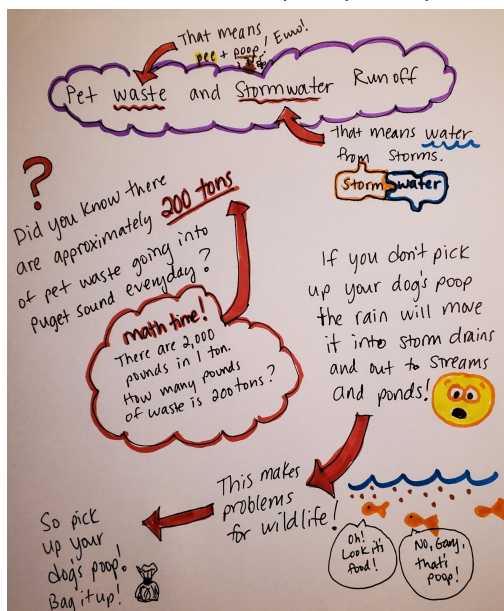 That means
pee + poop! Eww!
Pet waste and Stormwater Run off
That means water
from storms.
Storm water
?
Did you know there
are approximately 200 tons
of pet waste going into
Puget sound everyday?
math time!
There are 2,000
pounds in 1 ton.
How many pounds
of waste is 200 tons?
If you don't pick
up your dog's poop
the rain will move
it into storm drains
and out to streams
and ponds!
This makes
problems
for wildlife!
Oh!
Look it's
food!
No, Gary,
that's
poop!
So pick
up your
dog's poop!
Bag it up!